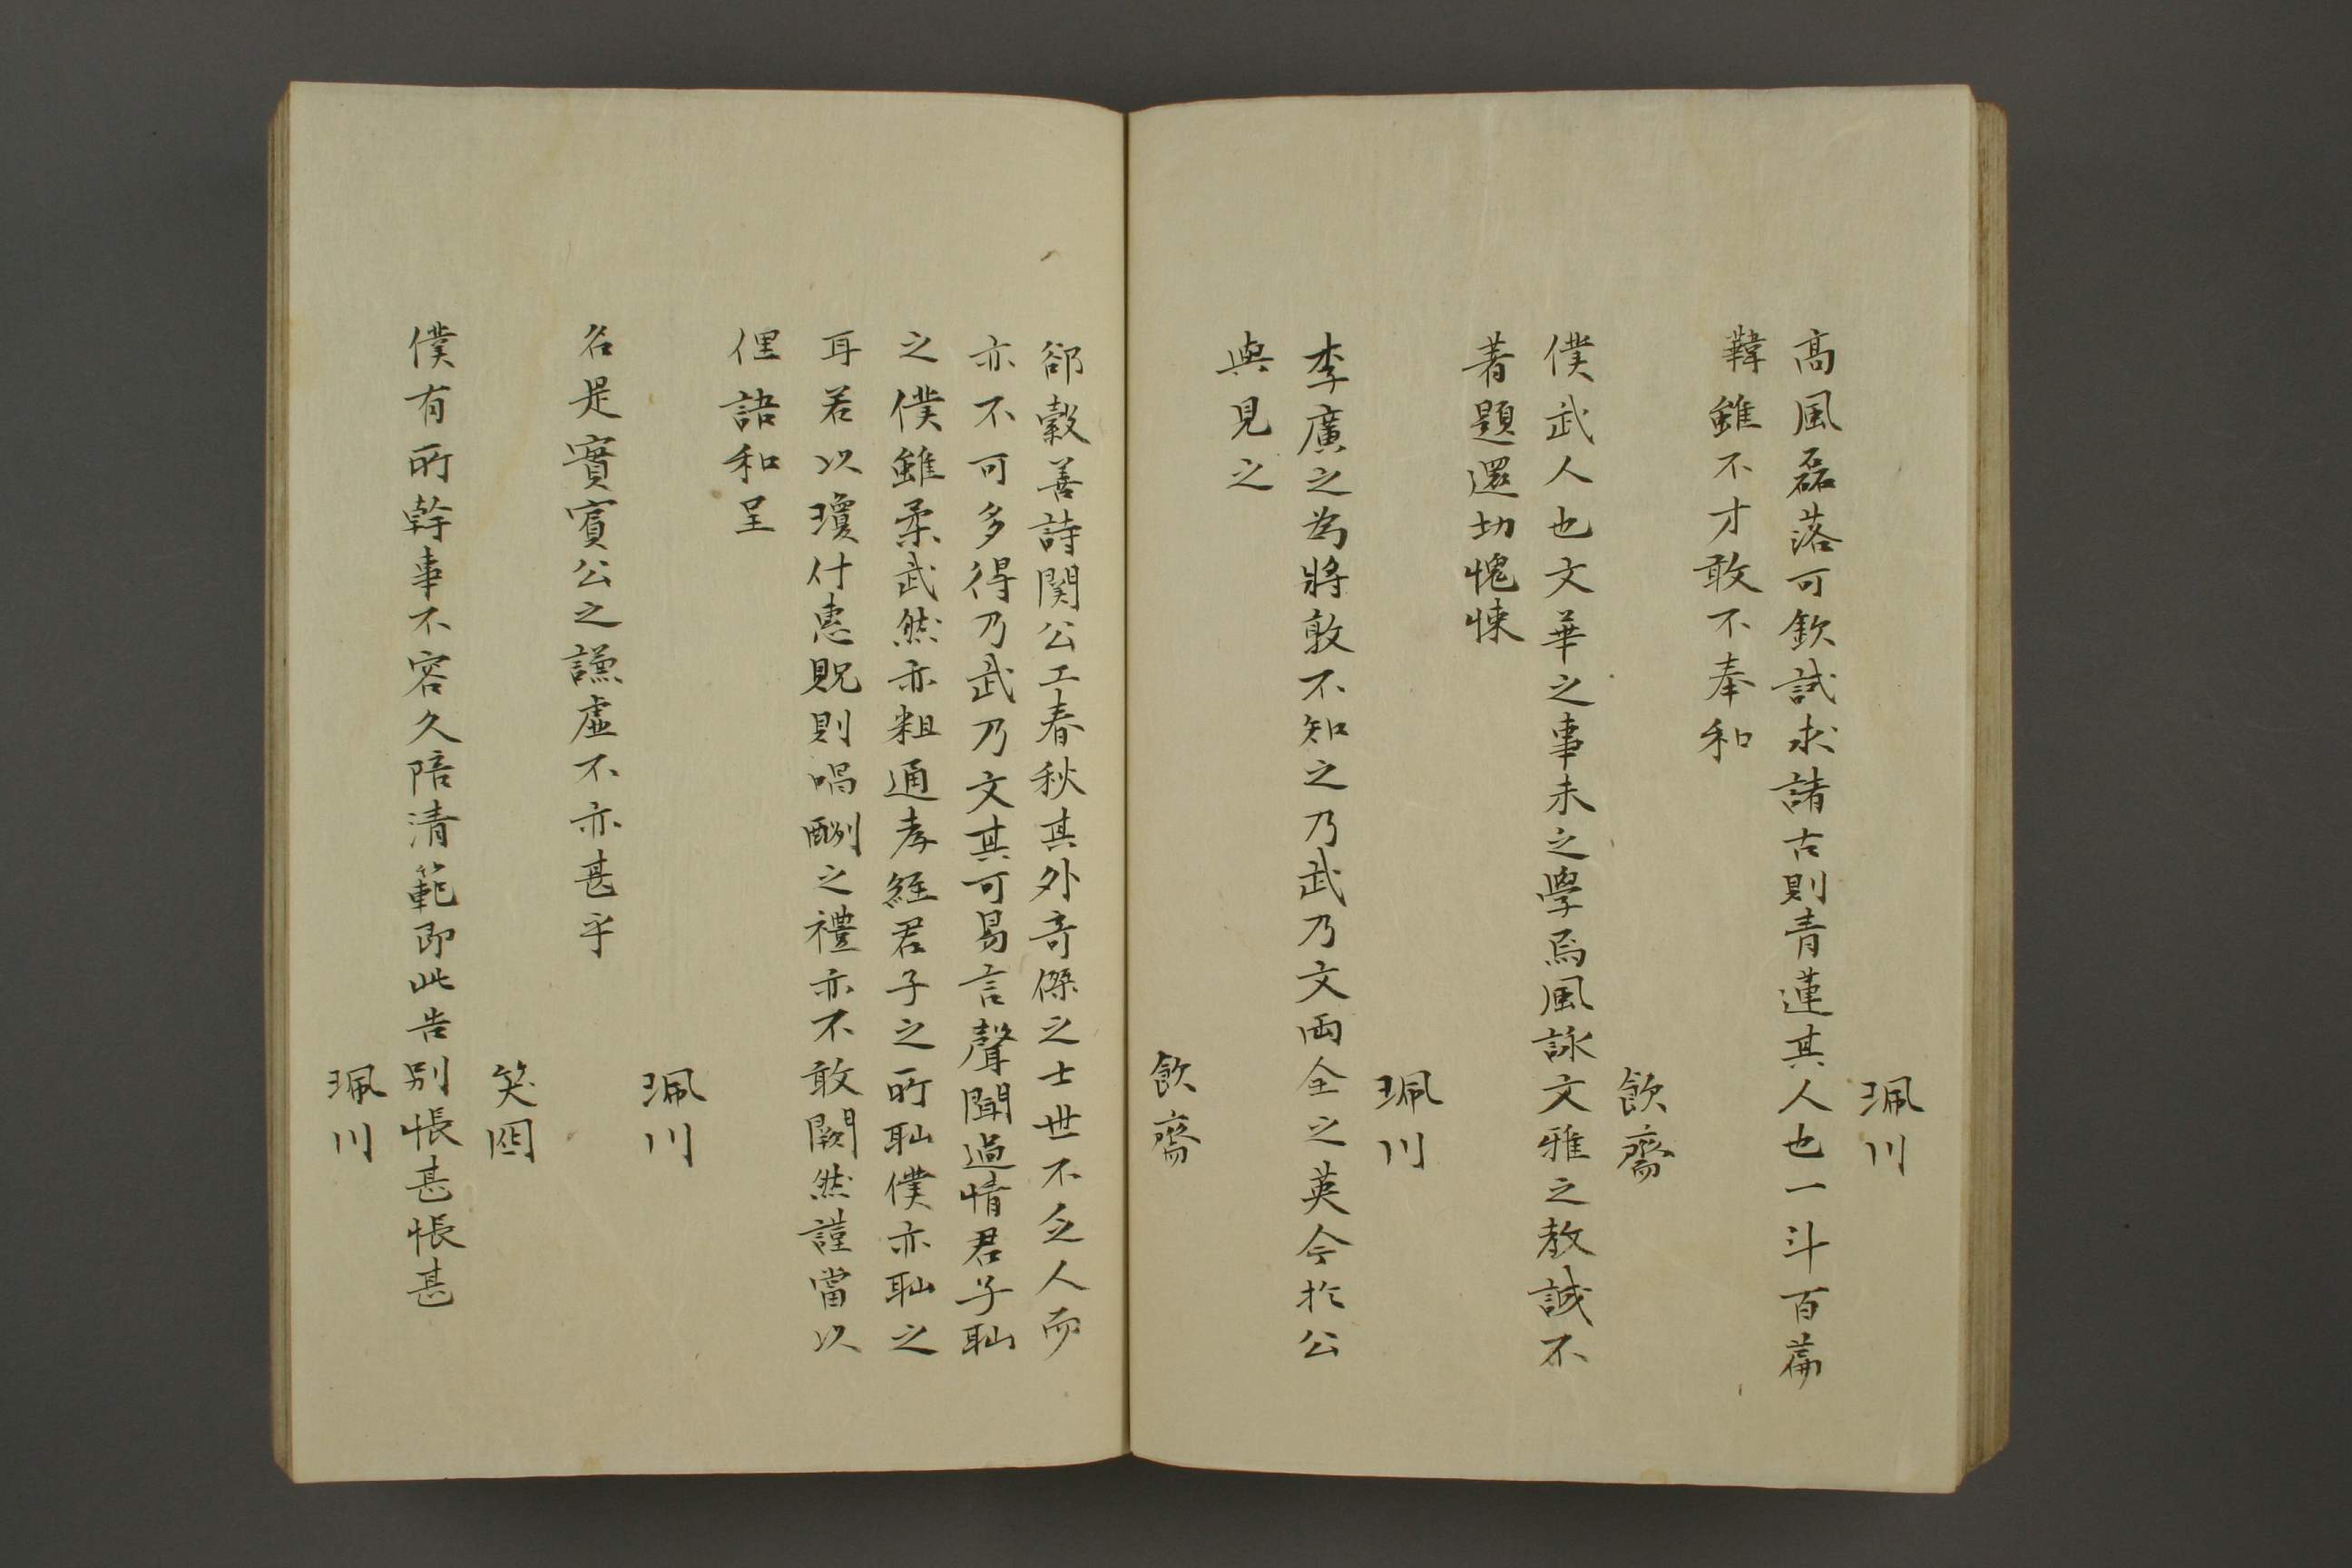 珮川
高風磊落可欽試求諸古則青蓮其人也一斗百篇
韓雖不才敢不奉和
飲齋
僕武人也文華之事未之學焉風詠文雅之教誠不
著題還切愧悚
珮川
李廣之為將敢不知之乃武乃文両全之英今於公
與見之
飲齋
郤縠善詩関公工春秋其外竒傑之士世不乏人而
亦不可多得乃武乃文其可易言聲聞過情君子耻
之僕雖柔武然亦粗通孝経君子之所耻僕亦耻之
耳若以瓊什惠貺則唱酬之禮亦不敢闕然謹當以
俚語和呈
珮川
名是實賓公之謙虛不亦甚乎
笑囮
僕有所幹事不容久陪清範即此告別悵甚悵甚
珮川